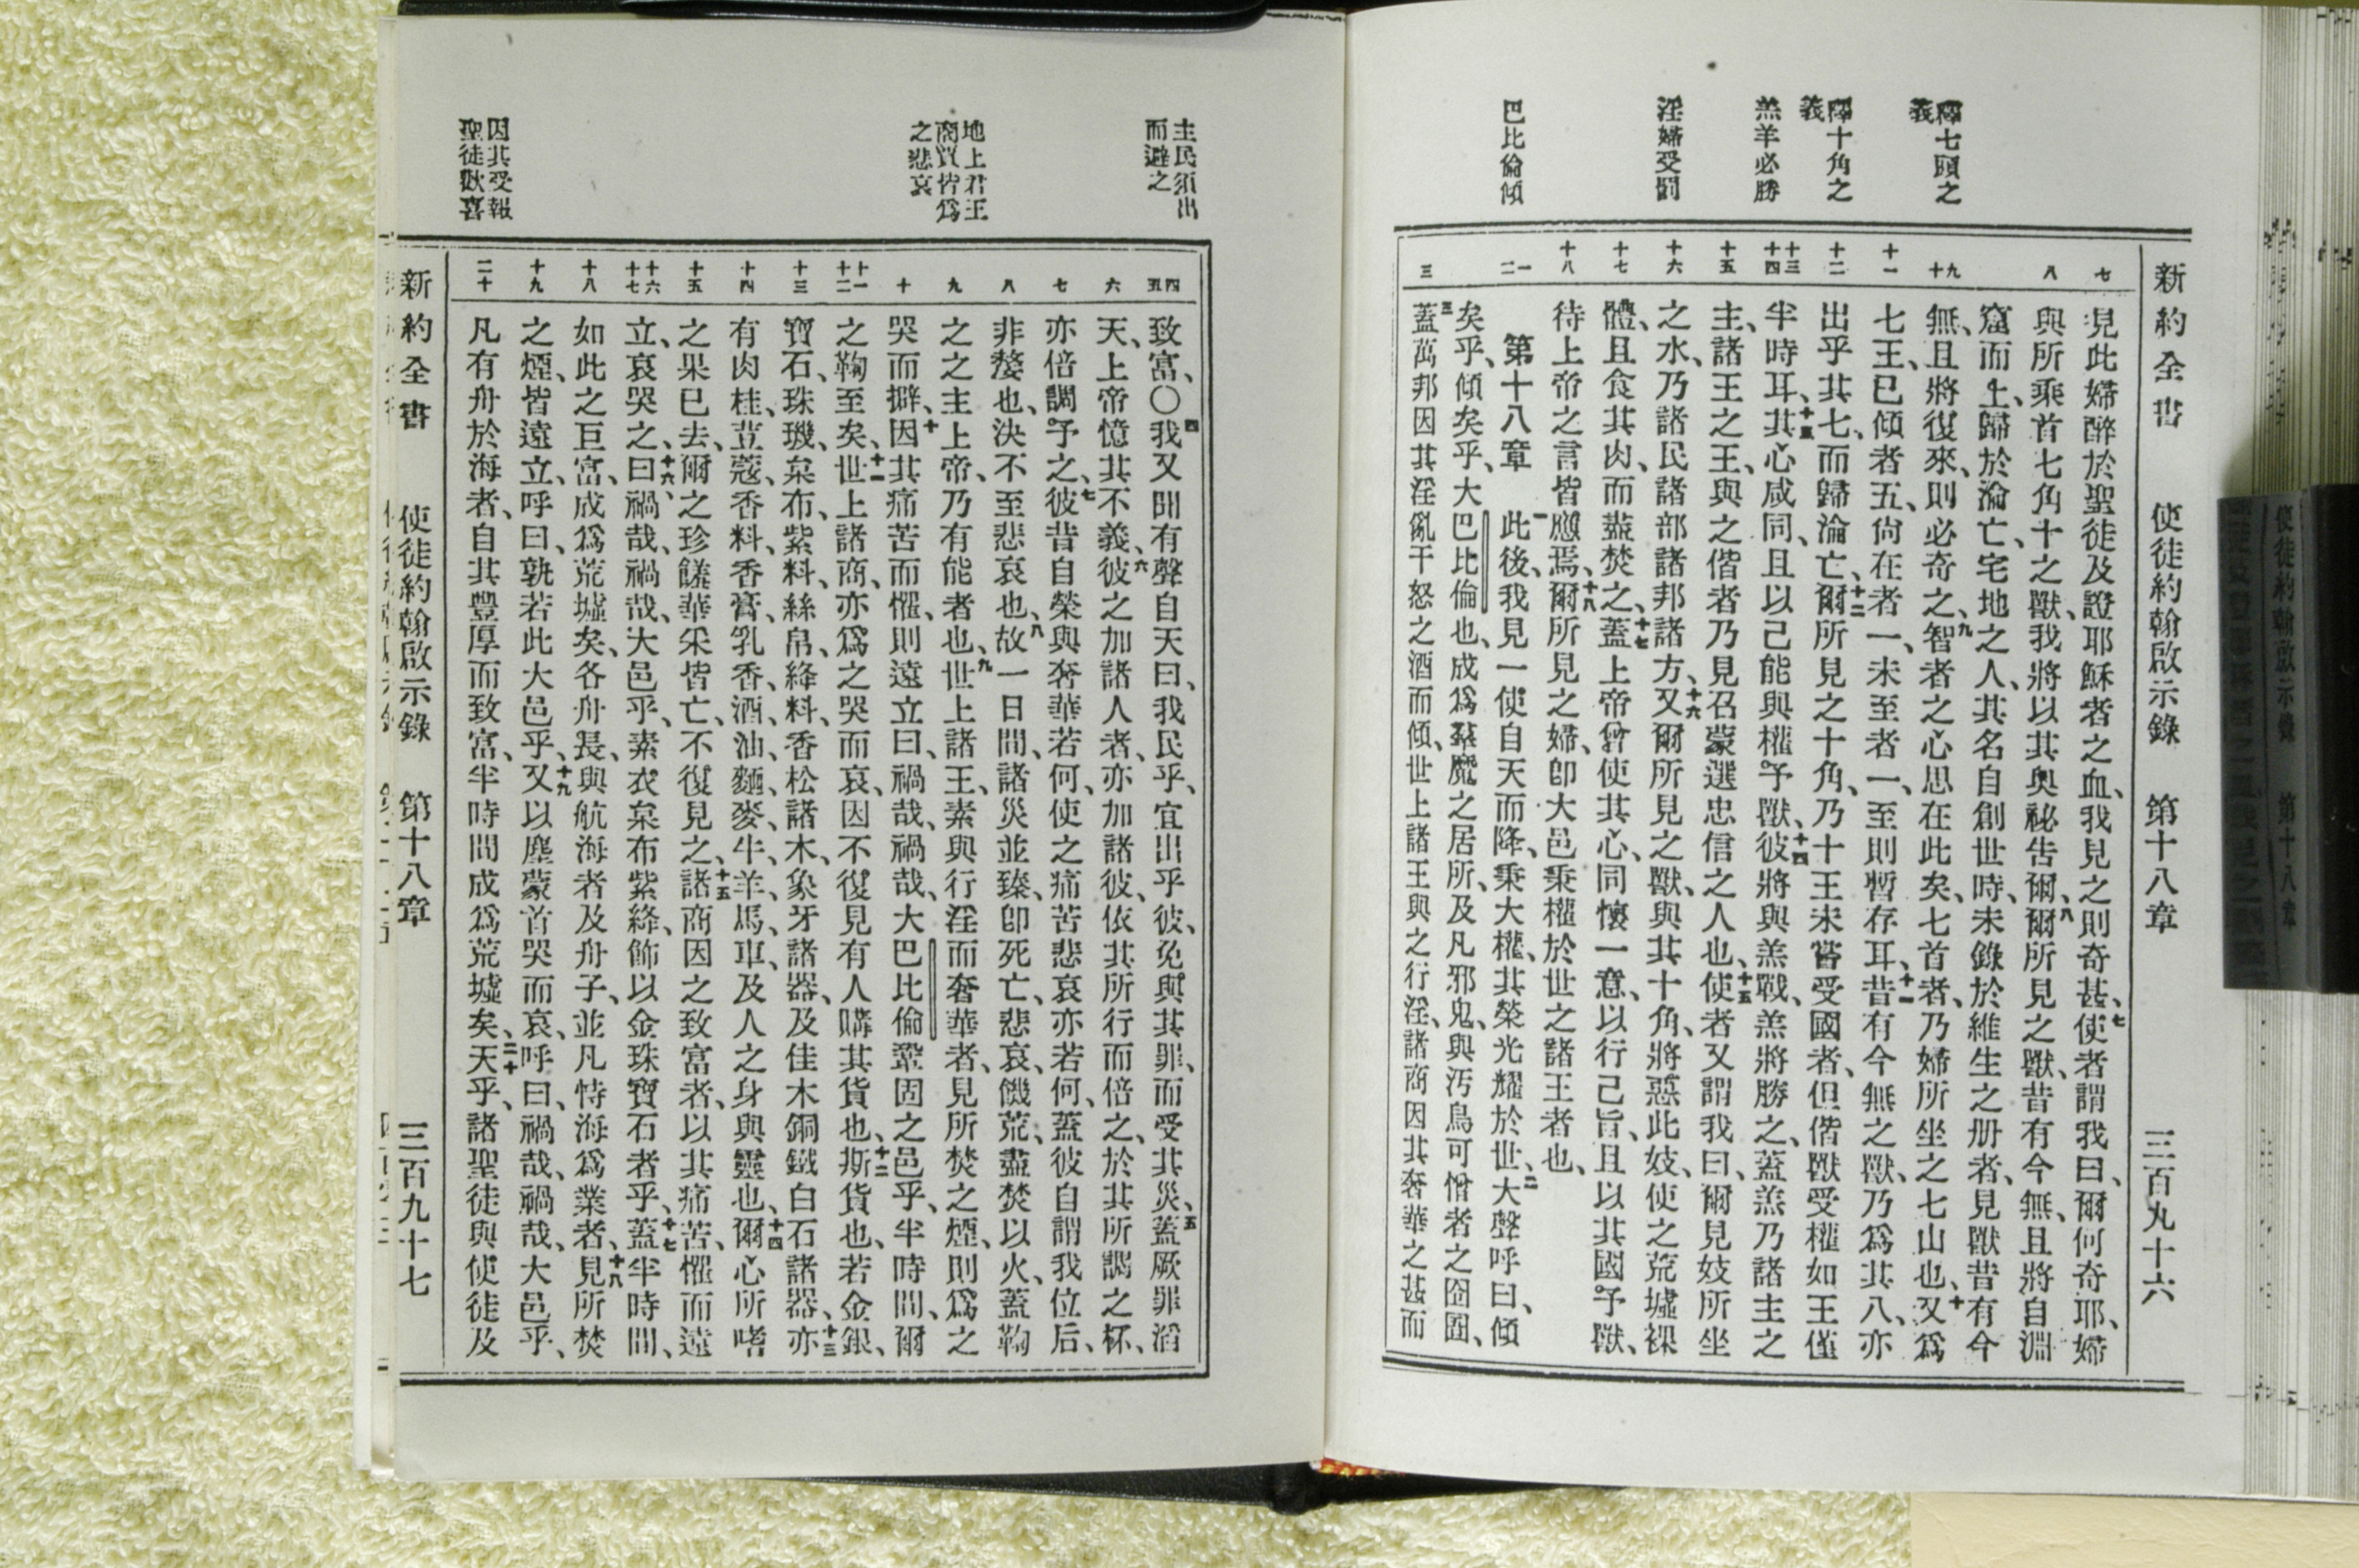 新約全書 使徒約翰啟示錄 第十八章 三百九十六
釋七頭之
義
釋十角之
義
羔羊必勝
淫婦受罰
巴比倫傾
七
八
九
十
十一
十二
十三
十四
十五
十六
十七
十八
一
二
三
見此婦醉於聖徒及證耶穌者之血、我見之則奇甚、七使者謂我曰、爾何奇耶、婦
與所乘首七角十之獸、我將以其奧祕告爾、八爾所見之獸、昔有今無、且將自淵
窟而上、歸於淪亡、宅地之人、其名自創世時、未錄於維生之册者、見獸昔有今
無、且將復來、則必奇之、九智者之心思在此矣、七首者、乃婦所坐之七山也、十又爲
七王、已傾者五、尙在者一、未至者一、至則暫存耳、十一昔有今無之獸、乃爲其八、亦
出乎其七、而歸淪亡、十二爾所見之十角、乃十王未嘗受國者、但偕獸受權如王僅
半時耳、十三其心咸同、且以己能與權予獸、十四彼將與羔戰、羔將勝之、蓋羔乃諸主之
主、諸王之王、與之偕者乃見召蒙選忠信之人也、十五使者又謂我曰、爾見妓所坐
之水、乃諸民諸部諸邦諸方、十六又爾所見之獸、與其十角、將惡此妓、使之荒墟裸
體、且食其肉、而盡焚之、十七蓋上帝曾使其心、同懷一意、以行己旨、且以其國予獸、
待上帝之言皆應焉、十八爾所見之婦、卽大邑秉權於世之諸王者也、
第十八章 一此後、我見一使自天而降、秉大權、其榮光耀於世、二大聲呼曰、傾
矣乎、傾矣乎、大巴比倫也、成爲羣魔之居所、及凡邪鬼、與汚鳥可憎者之囹圄、
三蓋萬邦因其淫亂干怒之酒而傾、世上諸王與之行淫、諸商因其奢華之甚而
主民須出
而避之
地上君王
商賈皆爲
之悲哀
因其受報
聖徒歡喜
四
五
六
七
八
九
十
十一
十二
十三
十四
十五
十六
十七
十八
十九
二十
致富、〇四我又聞有聲自天曰、我民乎、宜出乎彼、免與其罪、而受其災、五蓋厥罪滔
天、上帝憶其不義、六彼之加諸人者、亦加諸彼、依其所行而倍之、於其所調之杯、
亦倍調予之、七彼昔自榮與奢華若何、使之痛苦悲哀亦若何、蓋彼自謂我位后、
非嫠也、決不至悲哀也、八故一日間、諸災並臻、卽死亡、悲哀、饑荒、盡焚以火、蓋鞫
之之主上帝、乃有能者也、九世上諸王、素與行淫而奢華者、見所焚之煙、則爲之
哭而擗、十因其痛苦而懼、則遠立曰、禍哉、禍哉、大巴比倫鞏固之邑乎、半時間、爾
之鞫至矣、十一世上諸商、亦爲之哭而哀、因不復見有人購其貨也、十二斯貨也、若金銀、
寶石、珠璣、枲布、紫料、絲帛、絳料、香松諸木、象牙諸器、及佳木銅鐵白石諸器、十三亦
有肉桂、荳蔻、香料、香膏、乳香、酒、油、麵、麥、牛、羊、馬、車、及人之身與靈也、十四爾心所嗜
之果已去、爾之珍饈華采皆亡、不復見之、十五諸商因之致富者、以其痛苦、懼而遠
立、哀哭之、十六曰、禍哉、禍哉、大邑乎、素衣枲布紫絳、飾以金珠寶石者乎、十七蓋半時間、
如此之巨富、成爲荒墟矣、各舟長、與航海者及舟子、並凡恃海爲業者、十八見所焚
之煙、皆遠立、呼曰、孰若此大邑乎、十九又以塵蒙首哭而哀、呼曰、禍哉、禍哉、大邑乎、
凡有舟於海者、自其豐厚而致富、半時間成爲荒墟矣、二十天乎、諸聖徒與使徒及
新約全書 使徒約翰啟示錄 第十八章 三百九十七